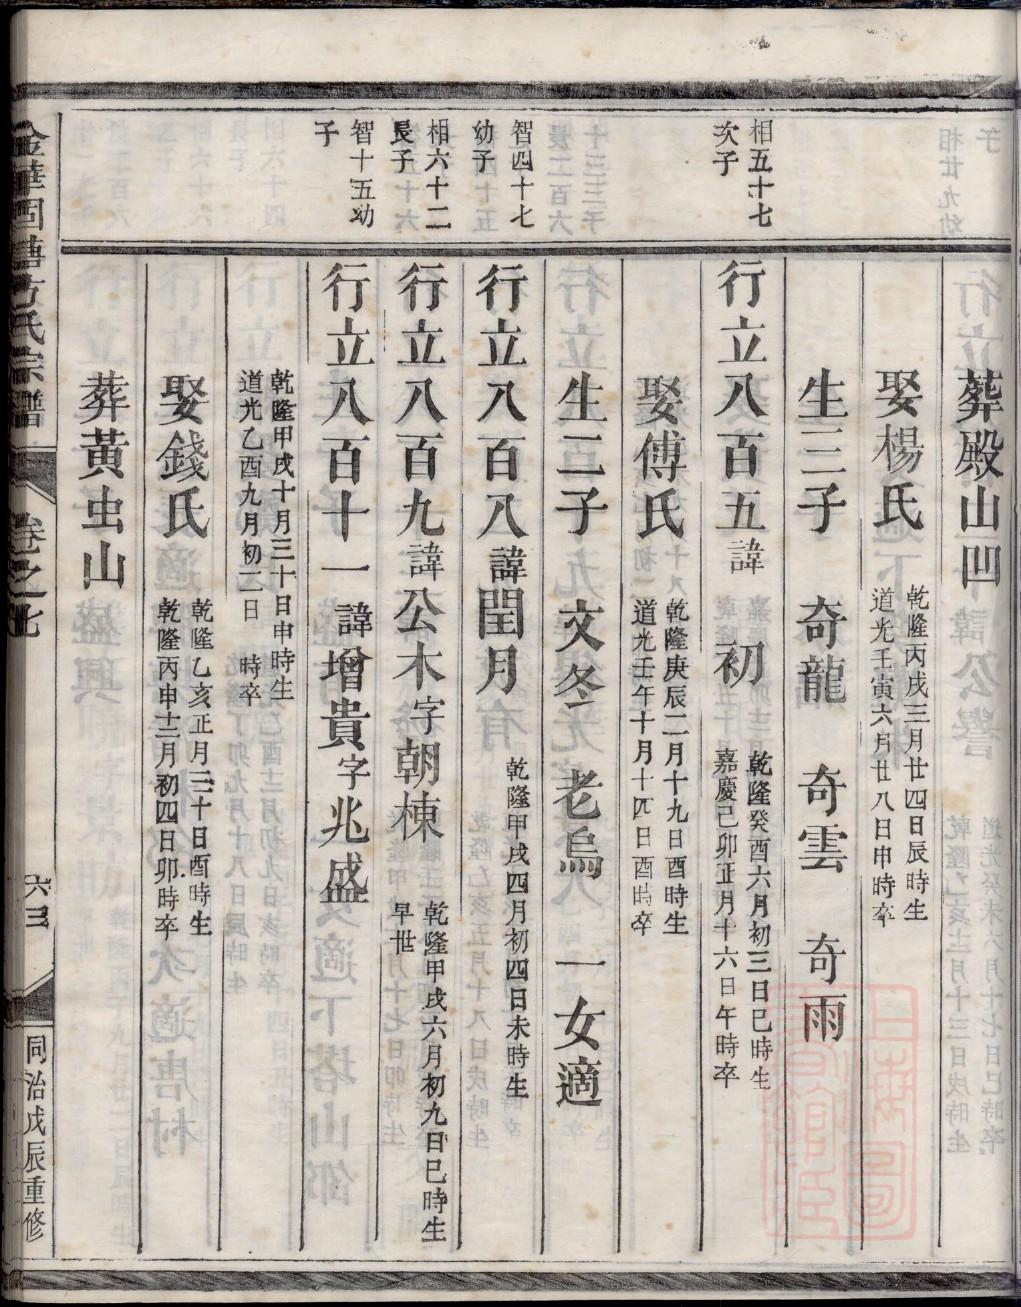 葬殿山凹
娶楊氏
乾隆丙戌三月廿四日辰時生
道光壬寅六月廿八日申時卒
生三子 奇龍 奇雲 奇雨
相五十七
次子
行立八百五諱 初
乾隆癸酉六月初三日巳時生
嘉慶己卯正月十六日午時卒
娶傅氏
乾隆庚辰二月十九日酉時生
道光壬午十月十四日酉時卒
生二子 文冬 老烏 一女適
智四十七
幼子
行立八百八諱閏月
乾隆甲戌四月初四日未時生
相六十二
長子
行立八百九諱公木字朝棟
乾隆甲戌六月初九日巳時生
早世
智十五幼
子
行立八百十一諱增貴字兆盛
乾隆甲戌十月三十日申時生
道光乙酉九月初二日 時卒
娶錢氏
乾隆乙亥正月三十日酉時生
乾隆丙申十二月初四日卯時卒
葬黃虫山
金華囸塘方氏宗譜
卷之七
六三
同治戊辰重修